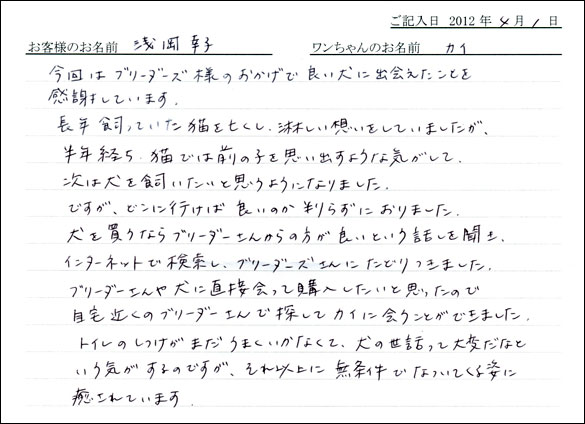 ご記入日 2012 年 4 月 1 日
お客様のお名前 浅岡幸子 ワンちゃんのお名前 カイ
今回はブリーダーズ様のおかげで良い犬に出会えたことを
感謝しています.
長年飼っていた猫を亡くし、淋しい想いをしていましたが、
半年経ち、猫では前の子を思い出すような気がして.
次は犬を飼いたいと思うようになりました.
ですが、どこに行けば良いのか判らずにおりました.
犬を買うならブリーダーさんからの方が良いという話しを聞き、
インターネットで検索し、ブリーダーズさんにたどりつきました.
ブリーダーさんや犬に直接会って購入したいと思ったので
自宅近くのブリーダーさんで探してカイに会うことができました.
トイレのしつけがまだうまくいかなくて、犬の世話って大変だなと
いう気がするのですが、それ以上に無条件でなついてくる姿に
癒されています.